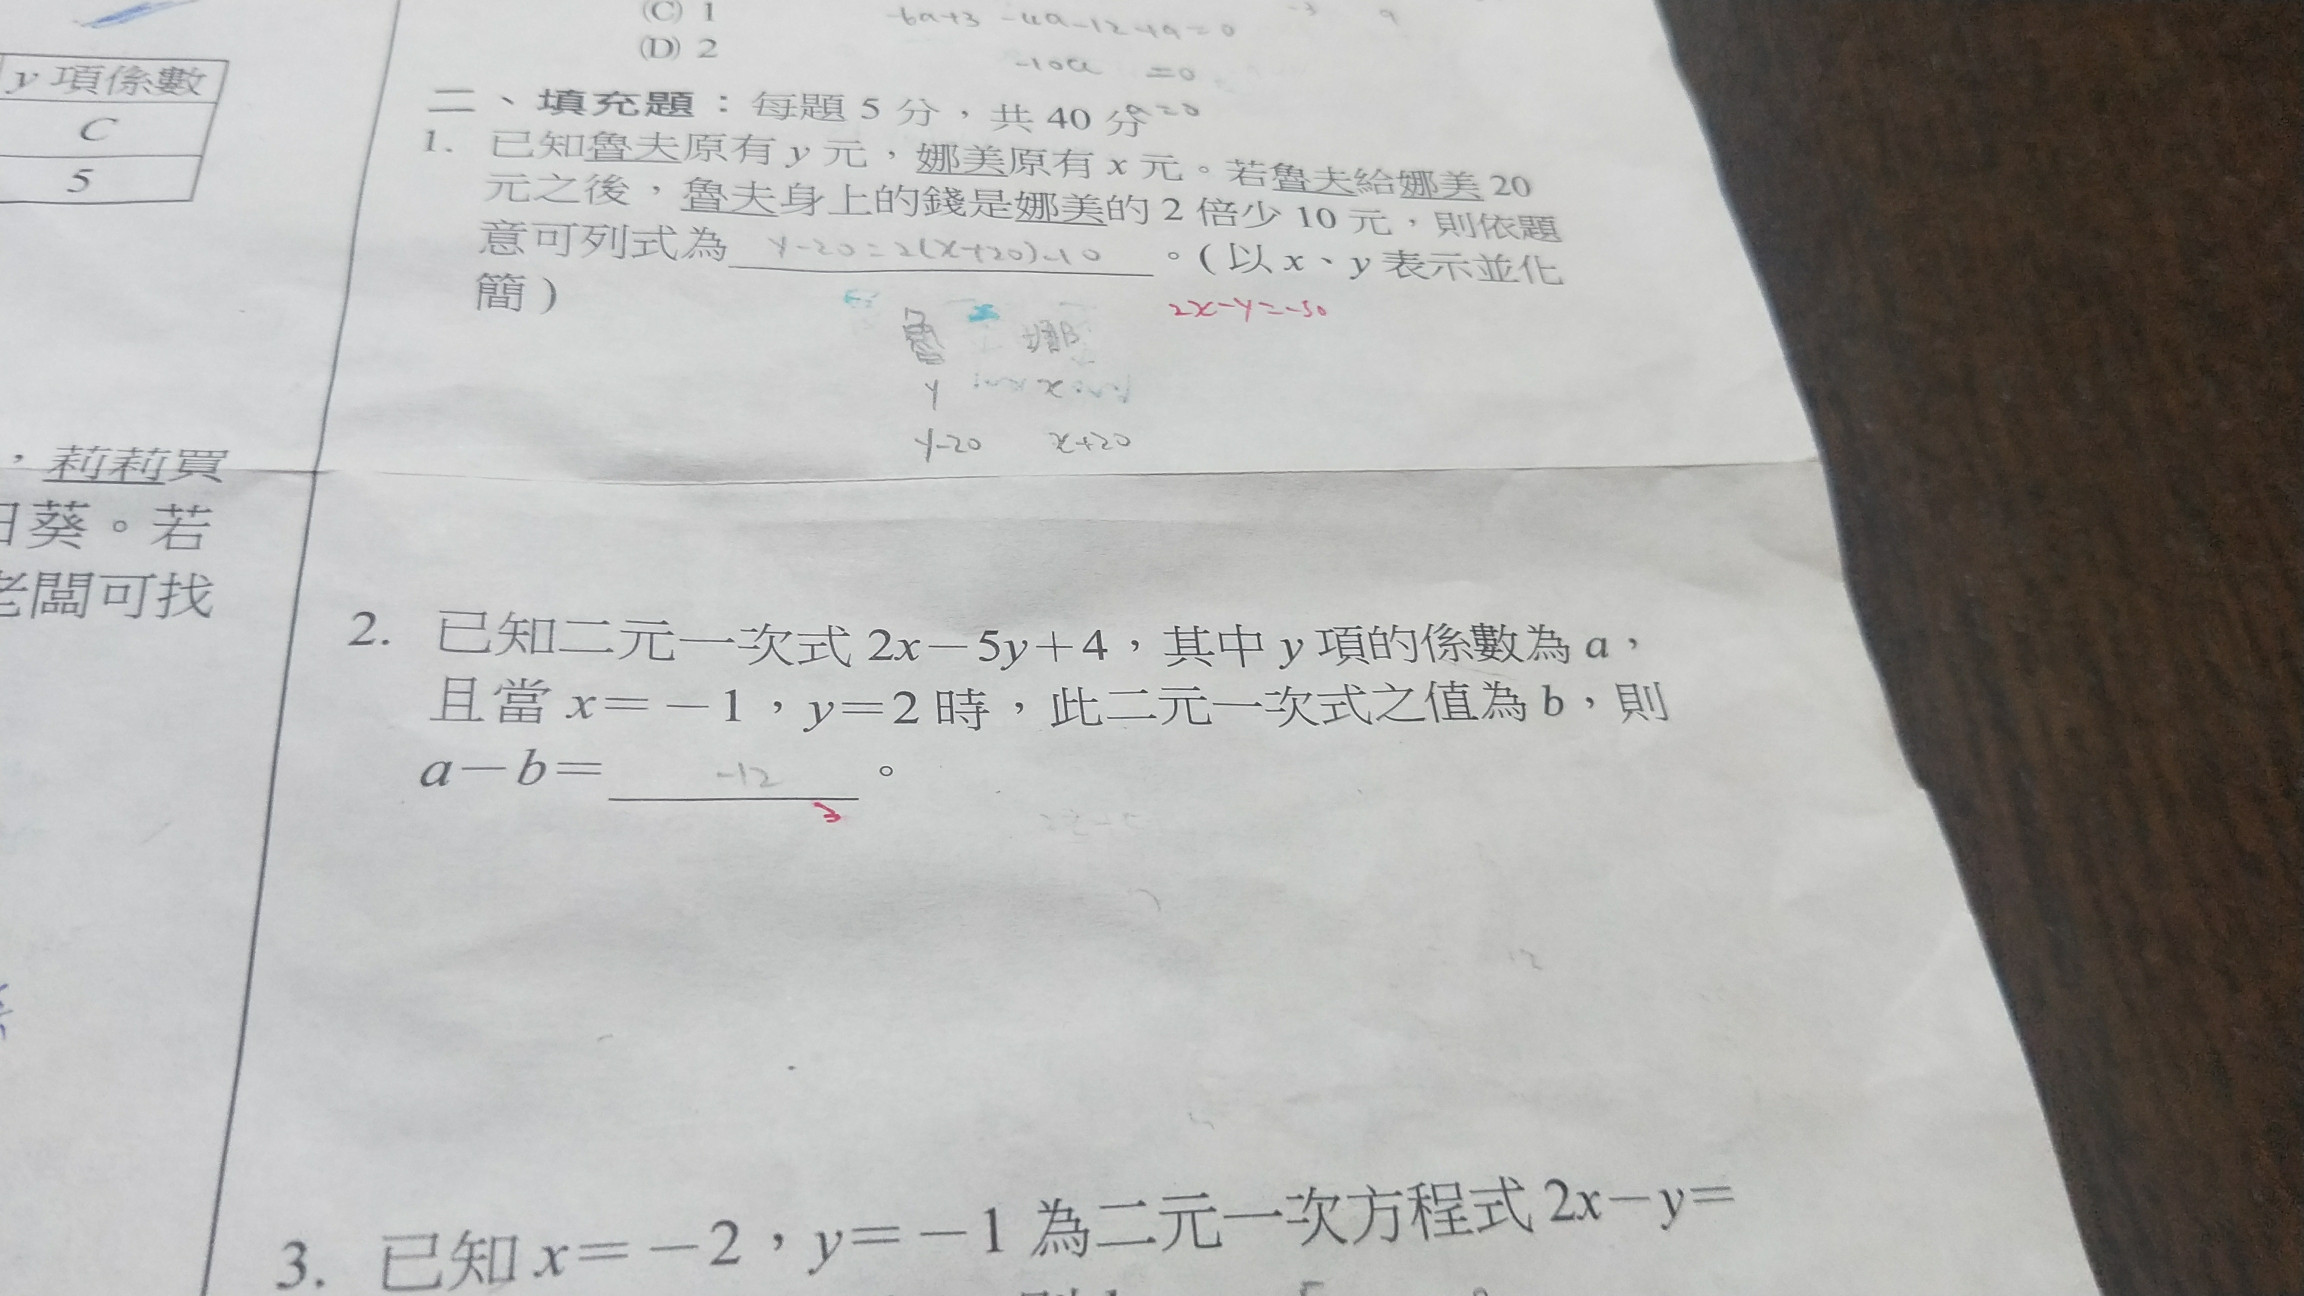 y 項係數
C
5
，莉莉買
日葵。若
老闆可找
(C) 1
(D) 2
-6a+3 -4a-12+9=0
-10a =0
a=0
二、填充題：每題 5 分，共 40 分
1. 已知魯夫原有 y 元，娜美原有 x 元。若魯夫給娜美 20
元之後，魯夫身上的錢是娜美的 2 倍少 10 元，則依題
意可列式為 y-20=2(x+20)-10 。( 以 x、y 表示並化
簡 )
2x-y=-50
魯 娜
y x
y-20 x+20
2. 已知二元一次式 2x－5y＋4，其中 y 項的係數為 a，
且當 x＝－1，y＝2 時，此二元一次式之值為 b，則
a－b＝ -12 。
3
3. 已知 x＝－2，y＝－1 為二元一次方程式 2x－y＝